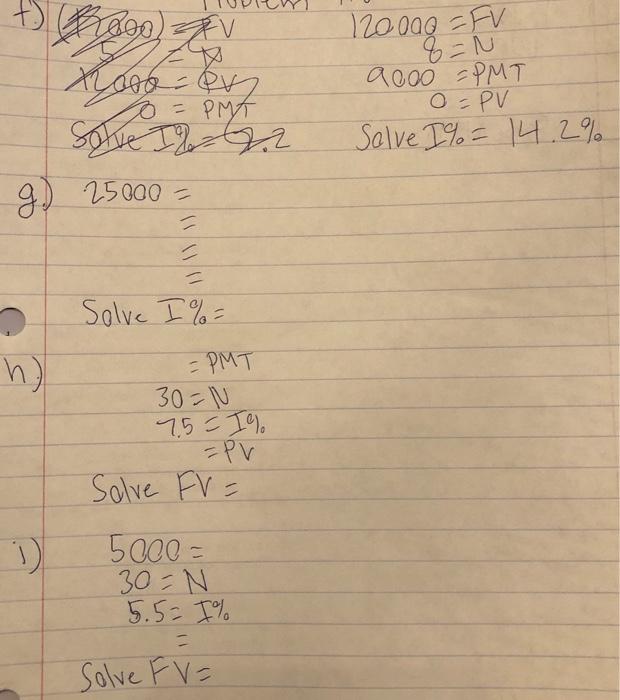 f.) 120000 = FV
8 = N
9000 = PMT
0 = PV
Solve I% = 14.2%
5 = N
12000 = PV
0 = PMT
Solve I% =
g.) 25000 =
=
=
=
Solve I% =
h) = PMT
30 = N
7.5 = I%
= PV
Solve FV =
i) 5000 =
30 = N
5.5 = I%
=
Solve FV =